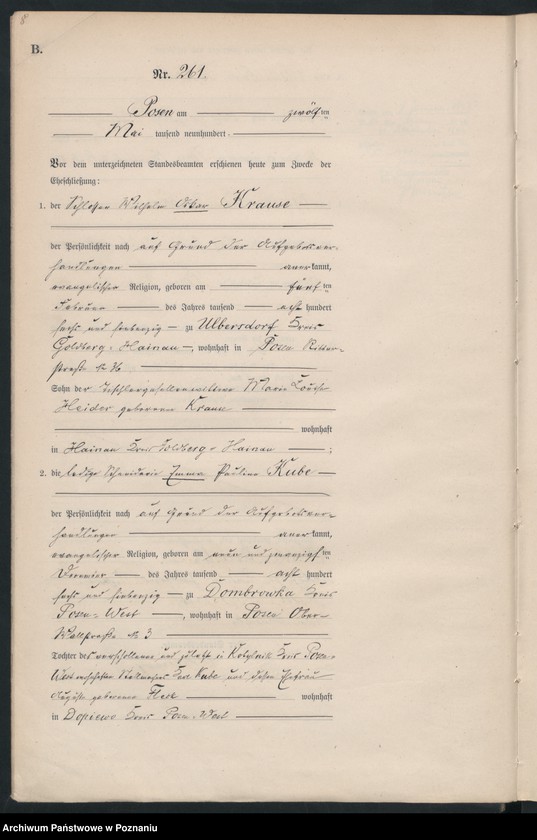 8
B.
Nr. 261.
Posen am zwölften
Mai tausend neunhundert
Vor dem unterzeichneten Standesbeamten erschienen heute zum Zwecke der
Eheschließung:
1. der Schlosser Wilhelm Oskar Krause
der Persönlichkeit nach auf Grund der Aufgebotsver-
handlungen anerkannt,
evangelischer Religion, geboren am fünften
Februar des Jahres tausend acht hundert
sechs und siebenzig zu Ulbersdorf Kreis
Goldberg-Hainau, wohnhaft in Posen Ritter-
straße № 36
Sohn der Tischlergesellenwittwe Marie Louise
Heider geborenen Krause
wohnhaft
in Hainau Kreis Goldberg-Hainau;
2. die ledige Schneiderin Emma Pauline Kube
der Persönlichkeit nach auf Grund der Aufgebotsver-
handlungen anerkannt,
evangelischer Religion, geboren am neun und zwanzigsten
des Jahres tausend acht hundert
sechs und siebenzig zu Dombrowka Kreis
Posen-West, wohnhaft in Posen Ober-
Wallstraße № 3
Tochter des verschollenen und zuletzt in Kreis Posen-
West Kube und dessen Ehefrau
Auguste geborenen wohnhaft
in Dopiewo Kreis Posen-West
Archiwum Państwowe w Poznaniu